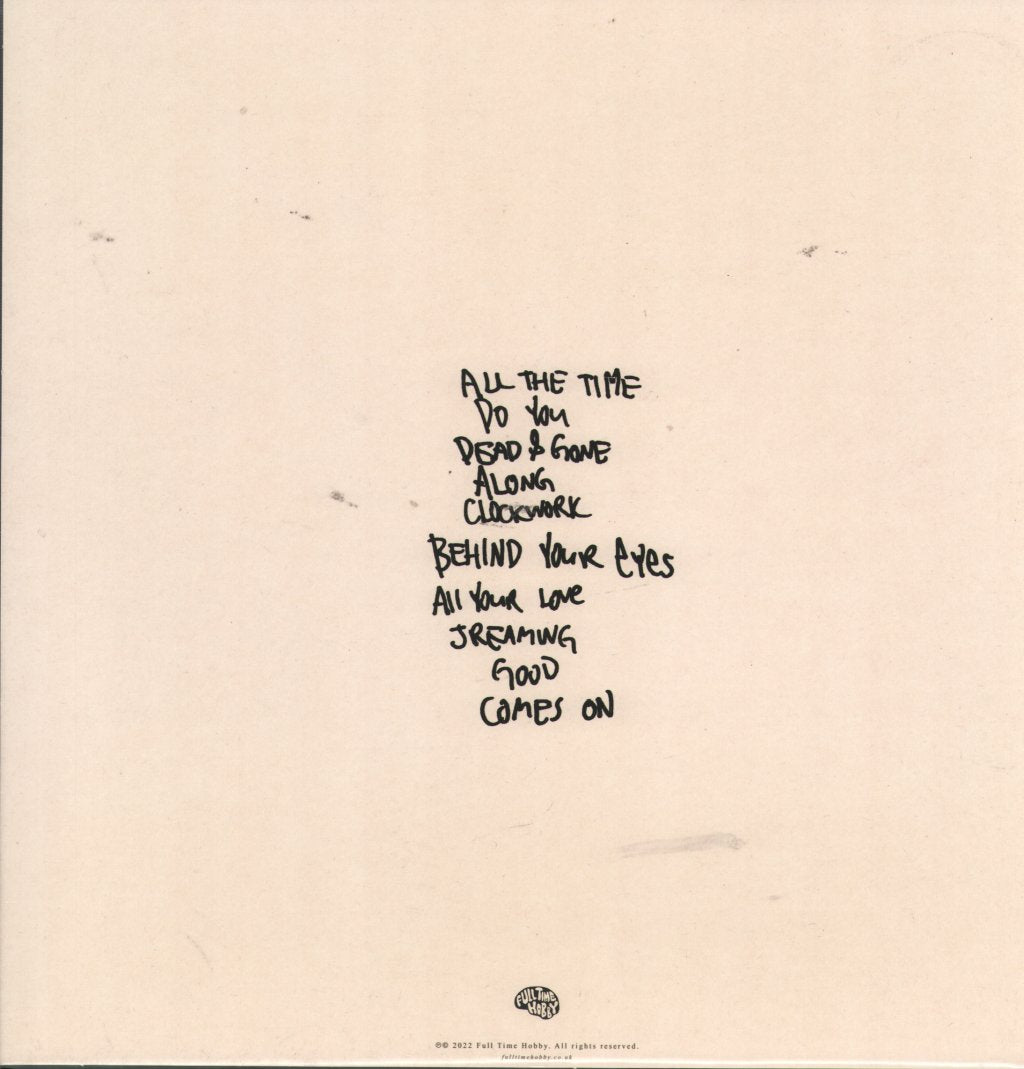 ALL THE TIME
DO YOU
DEAD & GONE
ALONG
CLOCKWORK
BEHIND YOUR EYES
All YOUR LOVE
JREAMING
GOOD
COMES ON
FULL TIME
HOBBY
℗© 2022 Full Time Hobby. All rights reserved.
fulltimehobby.co.uk